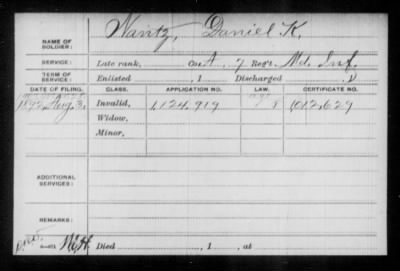 NAME OF SOLDIER: Wantz, Daniel K.
SERVICE: Late rank, Co. A, 7 Reg't Md. Inf.
TERM OF SERVICE: Enlisted , 1 Discharged , 1
DATE OF FILING. CLASS. APPLICATION NO. LAW. CERTIFICATE NO.
1892, Aug. 3. Invalid, 1,124,919 1,012,629
Widow,
Minor,
ADDITIONAL SERVICES:
REMARKS:
Died , 1 , at